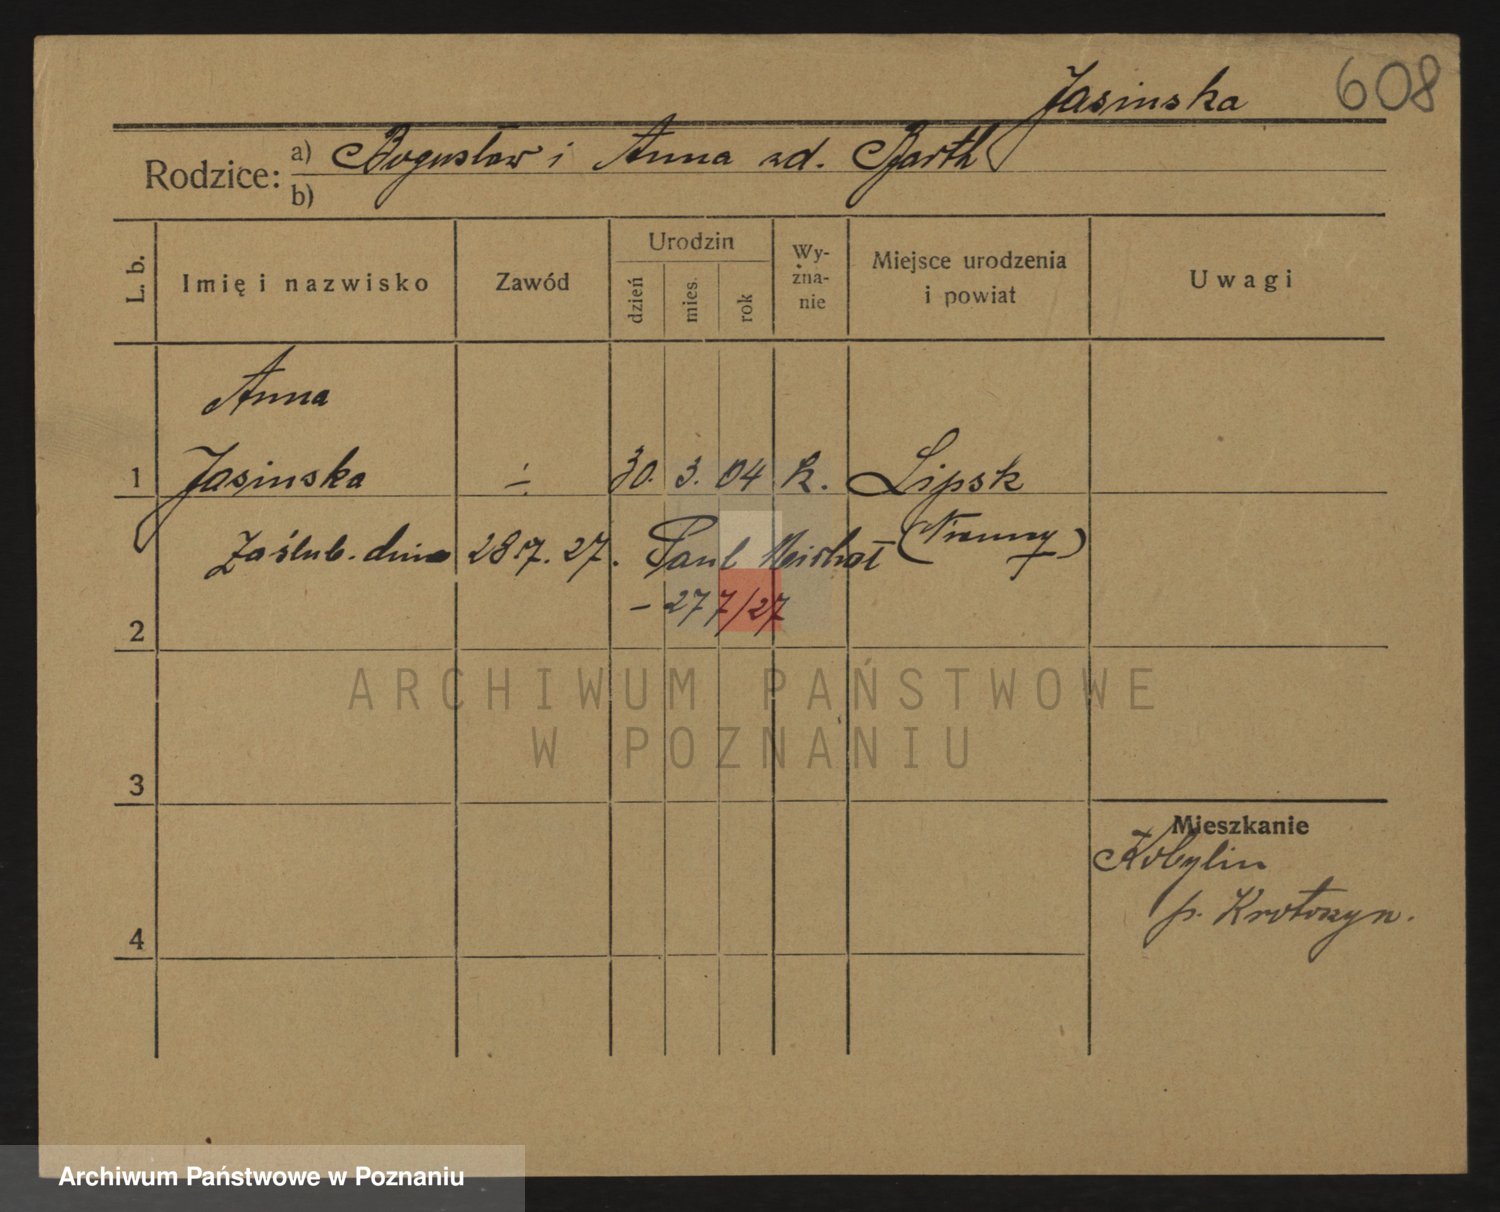 Jasinska 608
Rodzice: a) Bogusław i Anna zd. Barth
b)
L. b. Imię i nazwisko Zawód Urodzin dzień mies. rok Wy-żna-nie Miejsce urodzenia i powiat Uwagi
Anna
1 Jasinska ÷ 30. 3. 04 k. Lipsk
Zaślub. dnia 28/7. 27. Paul (Niemcy)
2 – 27 7/27
3
Mieszkanie
Kobylin
p. Krotoszyn.
4
ARCHIWUM PAŃSTWOWE
W POZNANIU
Archiwum Państwowe w Poznaniu